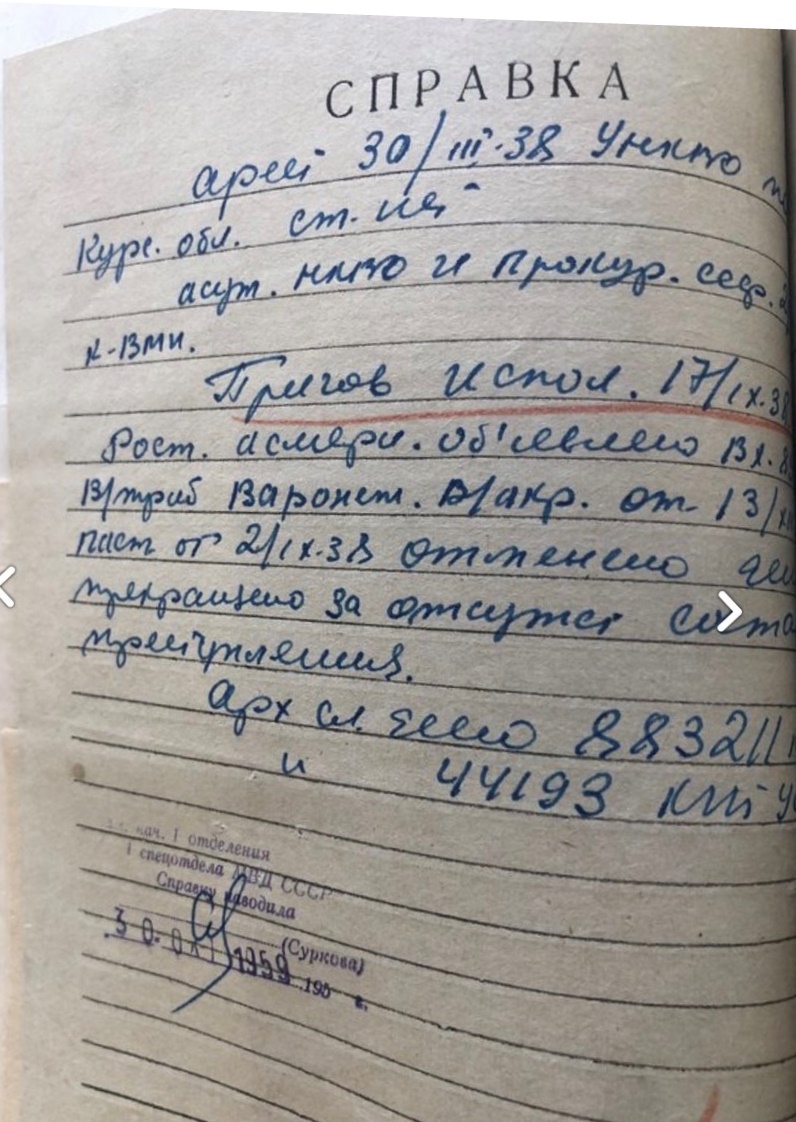 СПРАВКА
арест 30/III-38 УНКВД
Курс. обл. ст.
осуж. НКВД и Прокур. ссср.
к-ВМН.
Пригов испол. 17/IX-38
Рост. о смерти. об'явлено Вх.
В/триб Воронеж. В/окр. от 13/
пост от 2/IX-38 отменено
прекращено за отсутст соста
преступления.
арх сл. дело 888211
и 44193
нач. 1 отделения
1 спецотдела МВД СССР
Справку наводила
(Суркова)
30 ОКТ 1959 195 г.